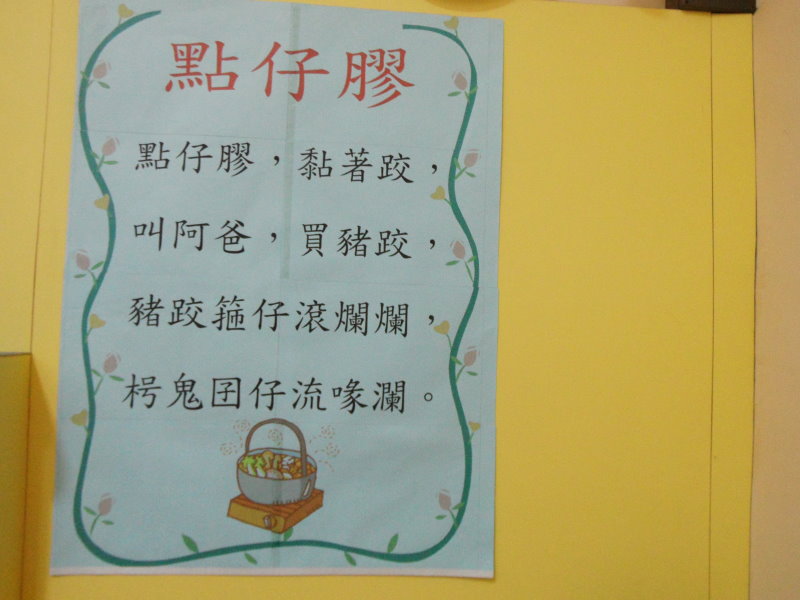 點仔膠
點仔膠，黏著跤，
叫阿爸，買豬跤，
豬跤箍仔滾爛爛，
枵鬼囝仔流喙瀾。